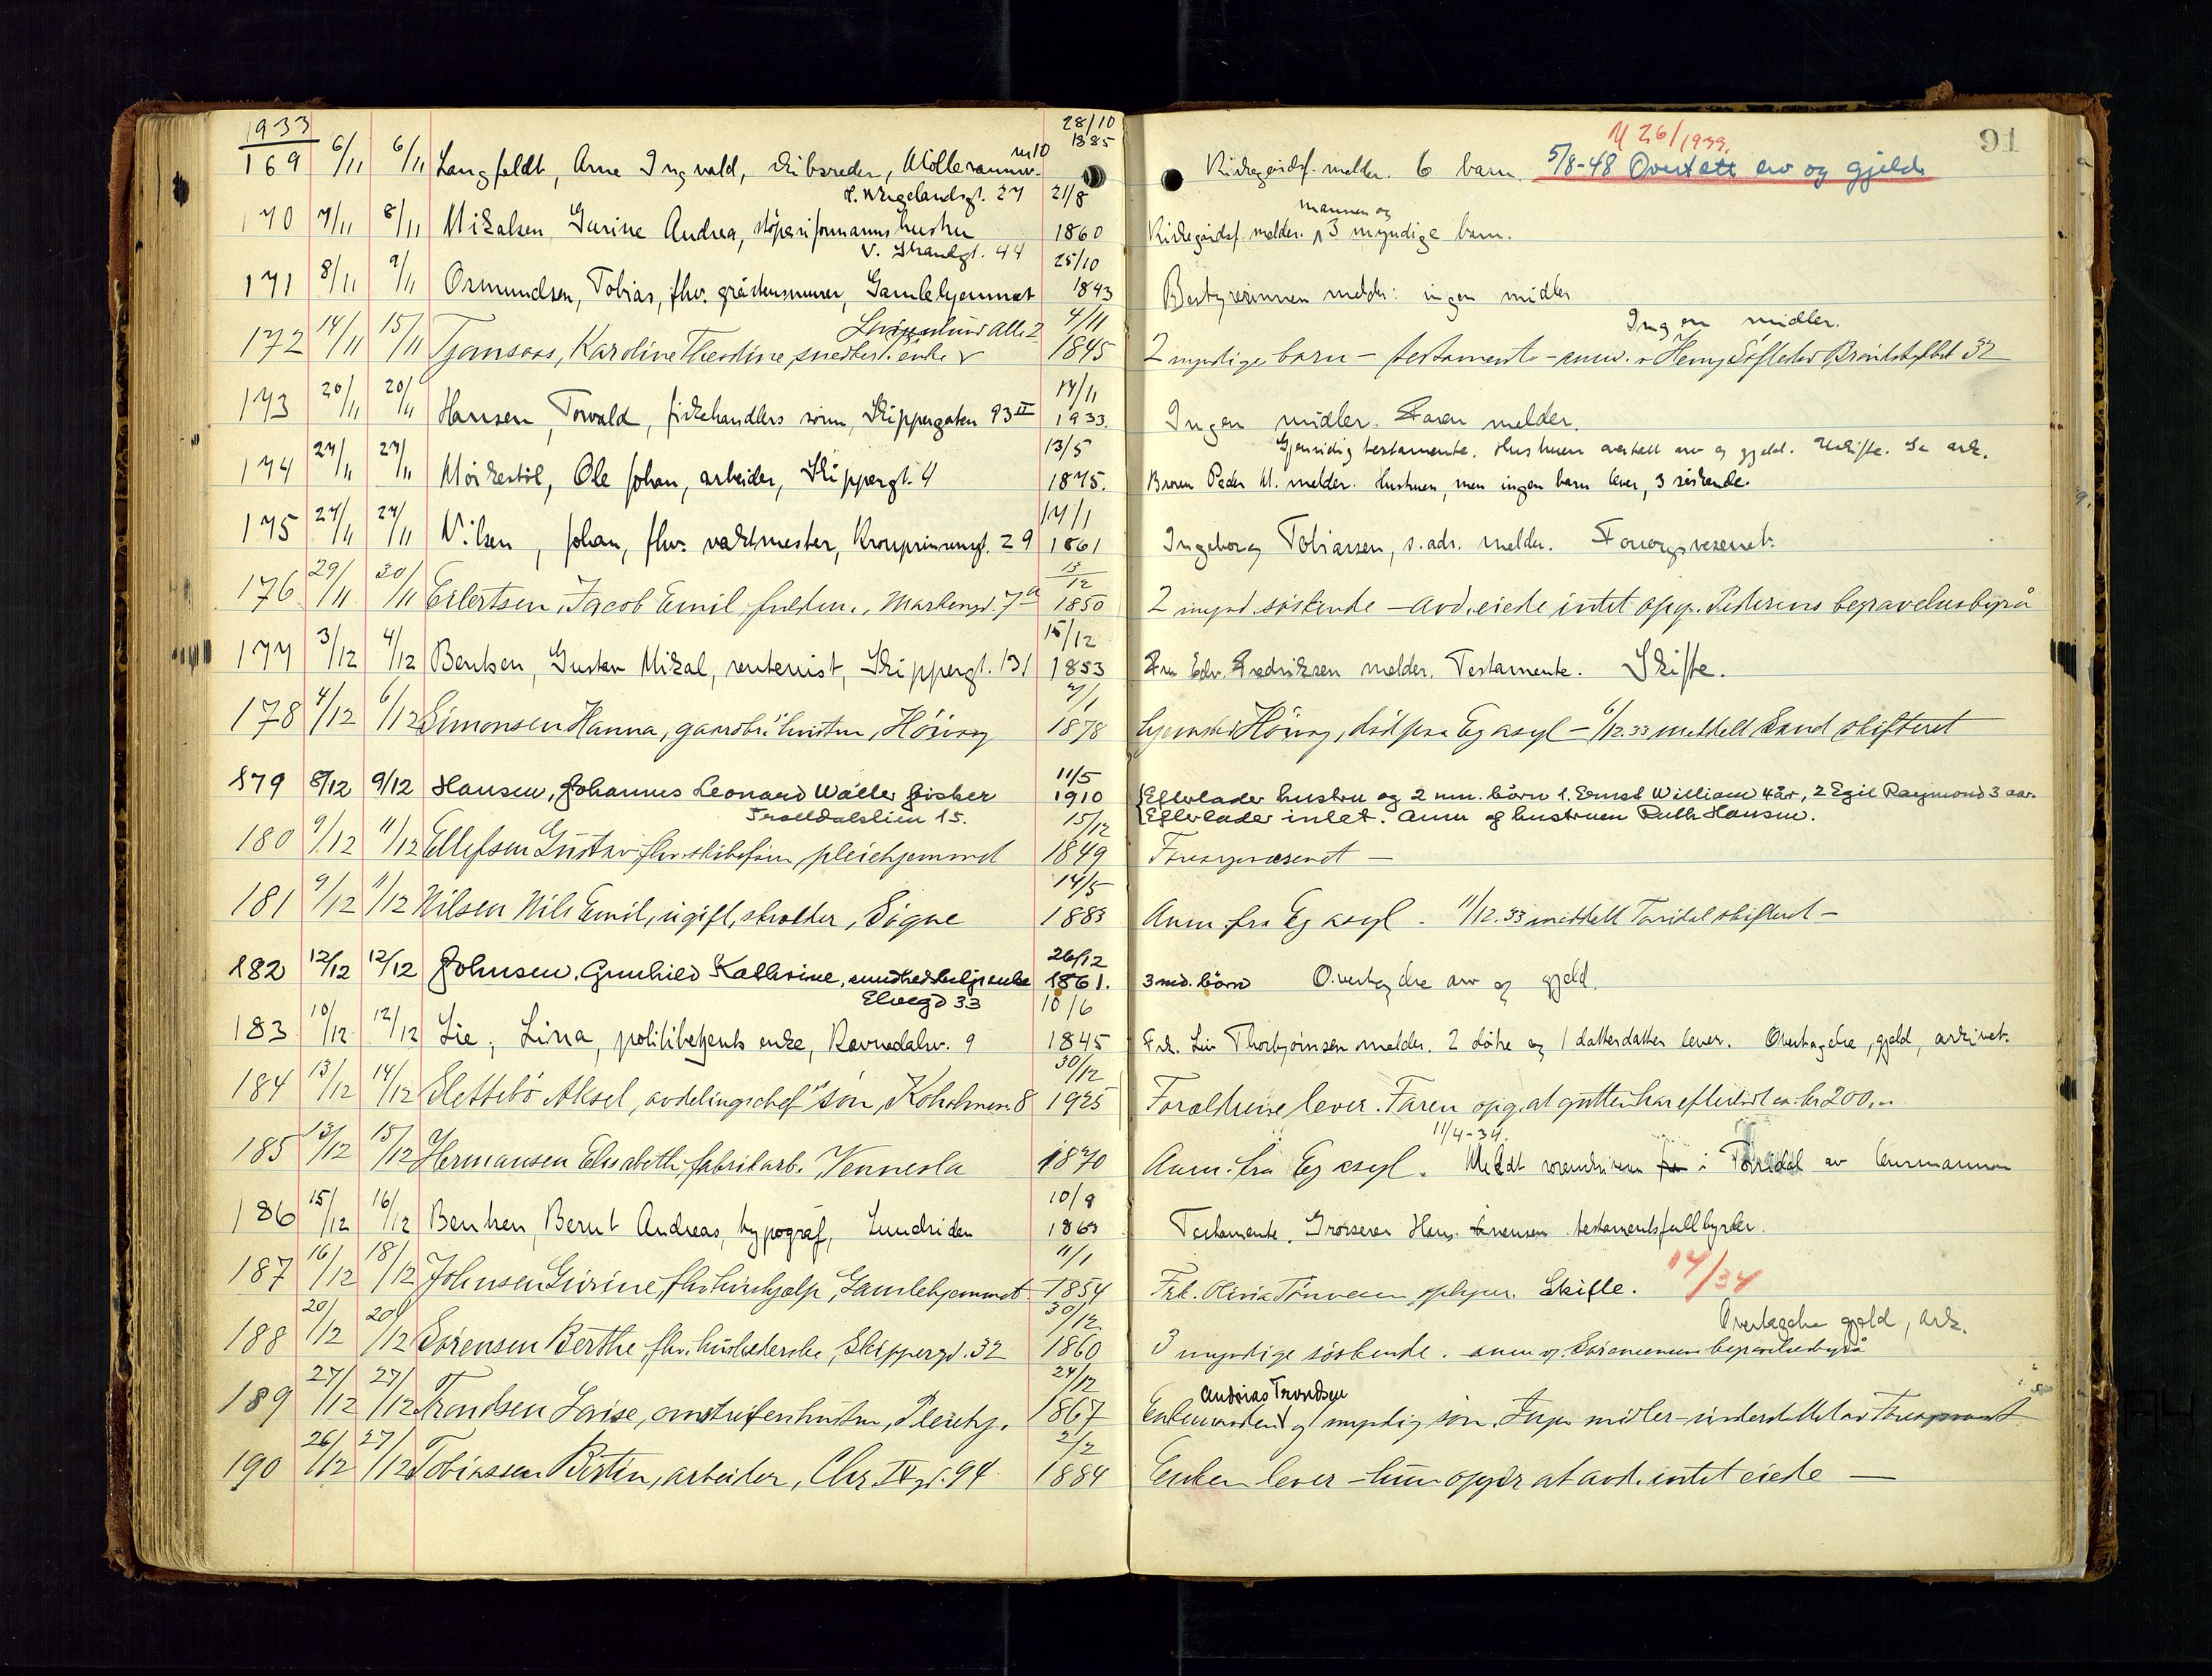 1933
91
169 6/11 6/11 Langfeldt, Arne Ingvald, skibsreder, nr 10 28/10 1885 Kirkegårdsf. melder. 6 barn. 5/8-48 Overtatt arv og gjeld
26/1933.
170 7/11 8/11 Mikalsen Gurine Andrea, støperiformanns hustru H. Wergelandsgt. 27 21/8 1860 Kirkegårdsf. melder. mannen og 3 myndige barn.
171 8/11 9/11 Osmundsen, Tobias, fhv. gråstensmurer, Gamlehjemmet V. Strandgt. 44 25/10 1843 Bestyrerinnen melder: ingen midler
172 14/11 15/11 Karoline Theodine, snedker. enke Alle 2 4/11 1845 2 myndige barn – testamente – anm. v Henry 32
Ingen midler.
173 20/11 20/11 Hansen, Torvald, fiskehandlers sønn, Skippergaten 93 II 17/11 1933. Ingen midler. Faren melder.
174 27/11 27/11 Ole Johan, arbeider, Skippergt. 4 13/5 1875. Gjensidig testamente. Hustruen overtatt arv og gjeld. Uskifte. Se ark.
Broren Peder M. melder. Hustruen, men ingen barn lever, 3 søskende.
175 27/11 27/11 Nilsen, Johan, fhv. vaktmester, Kronprinsensgt. 29 17/1 1861 Ingeborg Tobiassen, s. adr. melder. Forsorgsvesenet.
176 29/11 30/11 Eilertsen, Jacob Emil, Markensgt. 7a 13/12 1850 2 mynd. søskende – avd. eiede intet opg. Pedersens begravelsesbyrå
177 3/12 4/12 Bentsen, Gustav Mikal, rentenist, Skippergt. 131 15/12 1853 Fru Edv. Fredriksen melder. Testamente. Skifte.
178 4/12 6/12 Simonsen Hanna, gaardbr. hustru, Høivåg 7/1 1878 Høivåg, død fra Eg asyl – 6/12.33 meddelt Sand skifteret
179 8/12 9/12 Hansen, Johannes Leonard Walter fisker Trolldalslien 15. 11/5 1910 Efterlader hustru og 2 um. børn 1. Ernst William 4 år, 2 Egil Raymond 3 aar.
Efterlader intet. Anm af hustruen Ruth Hansen.
180 9/12 11/12 Ellefsen Gustav fhv. pleiehjemmet 15/12 1849 Forsorgsvæsenet –
181 9/12 11/12 Nilsen Nils Emil, ugift, Søgne 14/5 1883 Anm. fra Eg asyl. 11/12.33 meddelt Torridal skifteret –
182 12/12 12/12 Johnsen, Gunhild Kathrine, enke Elvegd 33 26/12 1861. 3 md. børn Overtagelse arv og gjeld.
183 10/12 12/12 Lie, Lina, politibetjents enke, Ravnedalsv. 9 10/6 1845 Frk. Liv Thorbjørnsen melder. 2 døtre og 1 datterdatter lever. Overtagelse, gjeld, arkivet.
184 13/12 14/12 Slettebø Aksel, avdelingschefs søn, Koholmen 8 30/12 1925 Forældrene lever. Faren opg. at gutten har efterlatt ca. kr 200,-
185 13/12 15/12 Hermansen Elisabeth fabrikarb. Vennesla 1870 Anm. fra Eg asyl. 11/4-34. Meldt i Torridal av lensmannen
186 15/12 16/12 Bentsen, Bernt Andreas, typograf, Lundsiden 10/9 1863 Testamente. Grosserer Hans testamentsfullbyrder.
187 16/12 18/12 Johnsen Gurine, fhv. hushjælp, Gamlehjemmet 11/1 1854 Frk. Olivia Skifte. 14/34
188 20/12 20/12 Sørensen Berthe fhv. husholderske, Skippergd. 32 30/12 1860 3 myndige søskende. anm. af Sørensens begravelsesbyrå
Overtagelse gjeld, ark.
189 27/12 27/12 Trondsen Lovise, hustru, Pleiehj. 24/12 1867 Enkemanden Andreas Trondsen og myndig søn. Ingen midler – understøttet av Forsorgsvæsenet
190 26/12 27/12 Tobiassen Bertin, arbeider, Chr. IV gt. 94 2/2 1884 Enken lever – hun opgir at avd. intet eiede —